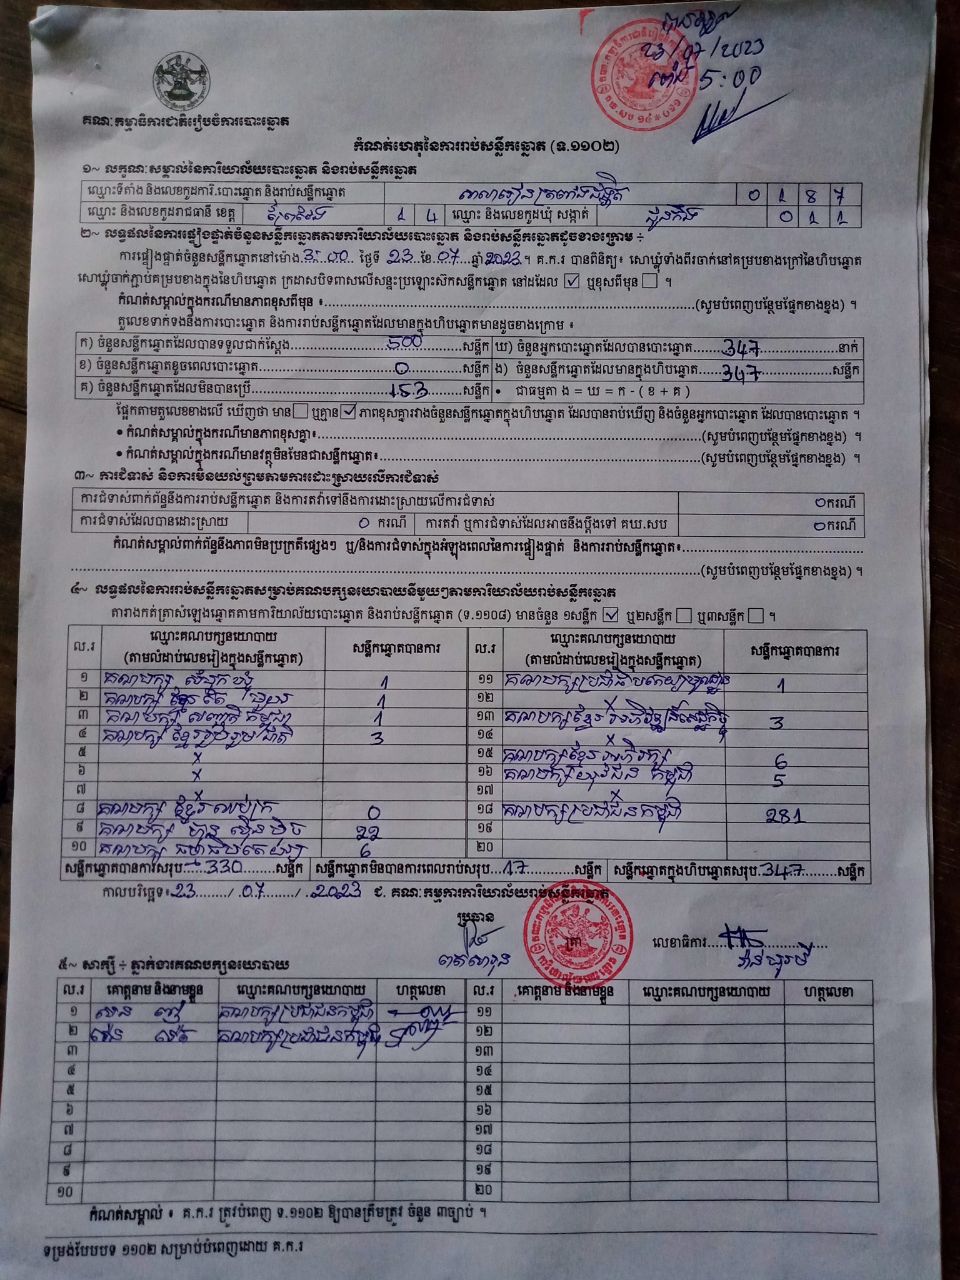 បានឃើញ
23/07/2023
ម៉ោង 5:00
គណៈកម្មាធិការជាតិរៀបចំការបោះឆ្នោត
កំណត់ហេតុនៃការរាប់សន្លឹកឆ្នោត (ទ.១១០២)
១~ លក្ខណៈសម្គាល់នៃការិយាល័យបោះឆ្នោត និងរាប់សន្លឹកឆ្នោត
ឈ្មោះទីតាំង និងលេខកូដការិ.បោះឆ្នោត និងរាប់សន្លឹកឆ្នោត 0 1 8 7
ឈ្មោះ និងលេខកូដរាជធានី ខេត្ត ព្រៃវែង 1 4 ឈ្មោះ និងលេខកូដឃុំ សង្កាត់ 0 1 1
២~ លទ្ធផលនៃការផ្ទៀងផ្ទាត់ចំនួនសន្លឹកឆ្នោតតាមការិយាល័យបោះឆ្នោត និងរាប់សន្លឹកឆ្នោតដូចខាងក្រោម ÷
ការផ្ទៀងផ្ទាត់ចំនួនសន្លឹកឆ្នោតនៅម៉ោង 3:00 ថ្ងៃទី 23 ខែ 07 ឆ្នាំ 2023 ។ គ.ក.រ បានពិនិត្យ៖ សោឃ្លុំទាំងពីរចាក់នៅគម្របខាងក្រៅនៃហិបឆ្នោត
សោឃ្លុំចាក់ភ្ជាប់គម្របខាងក្នុងនៃហិបឆ្នោត ក្រដាសបិទពាសលើសន្ទះប្រឡោះស៊កសន្លឹកឆ្នោត នៅដដែល ☑ ឬខុសពីមុន ☐ ។
កំណត់សម្គាល់ក្នុងករណីមានភាពខុសពីមុន ៖ (សូមបំពេញបន្ថែមផ្នែកខាងខ្នង) ។
តួលេខទាក់ទងនឹងការបោះឆ្នោត និងការរាប់សន្លឹកឆ្នោតដែលមានក្នុងហិបឆ្នោតមានដូចខាងក្រោម ៖
ក) ចំនួនសន្លឹកឆ្នោតដែលបានទទួលជាក់ស្តែង 500 សន្លឹក ឃ) ចំនួនអ្នកបោះឆ្នោតដែលបានបោះឆ្នោត 347 នាក់
ខ) ចំនួនសន្លឹកឆ្នោតខូចពេលបោះឆ្នោត 0 សន្លឹក ង) ចំនួនសន្លឹកឆ្នោតដែលមានក្នុងហិបឆ្នោត 347 សន្លឹក
គ) ចំនួនសន្លឹកឆ្នោតដែលមិនបានប្រើ 153 សន្លឹក • ជាធម្មតា ង = ឃ = ក - ( ខ + គ )
ផ្អែកតាមតួលេខខាងលើ ឃើញថា មាន ☐ ឬគ្មាន ☑ ភាពខុសគ្នារវាងចំនួនសន្លឹកឆ្នោតក្នុងហិបឆ្នោត ដែលបានរាប់ឃើញ និងចំនួនអ្នកបោះឆ្នោត ដែលបានបោះឆ្នោត ។
• កំណត់សម្គាល់ក្នុងករណីមានភាពខុសគ្នា៖ (សូមបំពេញបន្ថែមផ្នែកខាងខ្នង) ។
• កំណត់សម្គាល់ក្នុងករណីមានវត្ថុមិនមែនជាសន្លឹកឆ្នោត៖ (សូមបំពេញបន្ថែមផ្នែកខាងខ្នង) ។
៣~ ការជំទាស់ និងការមិនយល់ព្រមតាមការដោះស្រាយលើការជំទាស់
ការជំទាស់ពាក់ព័ន្ធនឹងការរាប់សន្លឹកឆ្នោត និងការតវ៉ាទៅនឹងការដោះស្រាយលើការជំទាស់ 0 ករណី
ការជំទាស់ដែលបានដោះស្រាយ 0 ករណី ការតវ៉ា ឬការជំទាស់ដែលអាចនឹងប្តឹងទៅ គឃ.សប 0 ករណី
កំណត់សម្គាល់ពាក់ព័ន្ធនឹងភាពមិនប្រក្រតីផ្សេងៗ ឬ/និងការជំទាស់ក្នុងអំឡុងពេលនៃការផ្ទៀងផ្ទាត់ និងការរាប់សន្លឹកឆ្នោត៖
(សូមបំពេញបន្ថែមផ្នែកខាងខ្នង) ។
៤~ លទ្ធផលនៃការរាប់សន្លឹកឆ្នោតសម្រាប់គណបក្សនយោបាយនីមួយៗតាមការិយាល័យរាប់សន្លឹកឆ្នោត
តារាងកត់ត្រាសំឡេងឆ្នោតតាមការិយាល័យបោះឆ្នោត និងរាប់សន្លឹកឆ្នោត (ទ.១១០៨) មានចំនួន ១សន្លឹក ☑ ឬ២សន្លឹក ☐ ឬ៣សន្លឹក ☐ ។
ល.រ ឈ្មោះគណបក្សនយោបាយ (តាមលំដាប់លេខរៀងក្នុងសន្លឹកឆ្នោត) សន្លឹកឆ្នោតបានការ ល.រ ឈ្មោះគណបក្សនយោបាយ (តាមលំដាប់លេខរៀងក្នុងសន្លឹកឆ្នោត) សន្លឹកឆ្នោតបានការ
១ គណបក្ស សំបុកឃ្មុំ 1 ១១ គណបក្សប្រជាធិបតេយ្យមូលដ្ឋាន 1
២ គណបក្ស ខ្មែរតែមួយ 1 ១២ x
៣ គណបក្ស សញ្ជាតិកម្ពុជា 1 ១៣ គណបក្សខ្មែរអភិវឌ្ឍន៍សេដ្ឋកិច្ច 3
៤ គណបក្ស ខ្មែររួបរួមជាតិ 3 ១៤ x
៥ x ១៥ គណបក្សខ្មែរអភិរក្ស 6
៦ x ១៦ គណបក្សយុវជនកម្ពុជា 5
៧ x ១៧ x
៨ គណបក្ស ខ្មែរឈប់ក្រ 0 ១៨ គណបក្សប្រជាជនកម្ពុជា 281
៩ គណបក្ស ហ្វ៊ុនស៊ិនប៉ិច 22 ១៩
១០ គណបក្ស ធម្មាធិបតេយ្យ 6 ២០
សន្លឹកឆ្នោតបានការសរុប 330 សន្លឹក សន្លឹកឆ្នោតមិនបានការពេលរាប់សរុប 17 សន្លឹក សន្លឹកឆ្នោតក្នុងហិបឆ្នោតសរុប 347 សន្លឹក
កាលបរិច្ឆេទ៖ 23 / 07 / 2023 ជ. គណៈកម្មការការិយាល័យរាប់សន្លឹកឆ្នោត
ប្រធាន ត្រា លេខាធិការ
៥~ សាក្សី ÷ ភ្នាក់ងារគណបក្សនយោបាយ
ល.រ គោត្តនាម និងនាមខ្លួន ឈ្មោះគណបក្សនយោបាយ ហត្ថលេខា ល.រ គោត្តនាម និងនាមខ្លួន ឈ្មោះគណបក្សនយោបាយ ហត្ថលេខា
១ គណបក្សប្រជាជនកម្ពុជា ១១
២ គណបក្សប្រជាជនកម្ពុជា ១២
៣ ១៣
៤ ១៤
៥ ១៥
៦ ១៦
៧ ១៧
៨ ១៨
៩ ១៩
១០ ២០
កំណត់សម្គាល់ ៖ គ.ក.រ ត្រូវបំពេញ ទ.១១០២ ឱ្យបានត្រឹមត្រូវ ចំនួន ៣ច្បាប់ ។
ទម្រង់បែបបទ ១១០២ សម្រាប់បំពេញដោយ គ.ក.រ